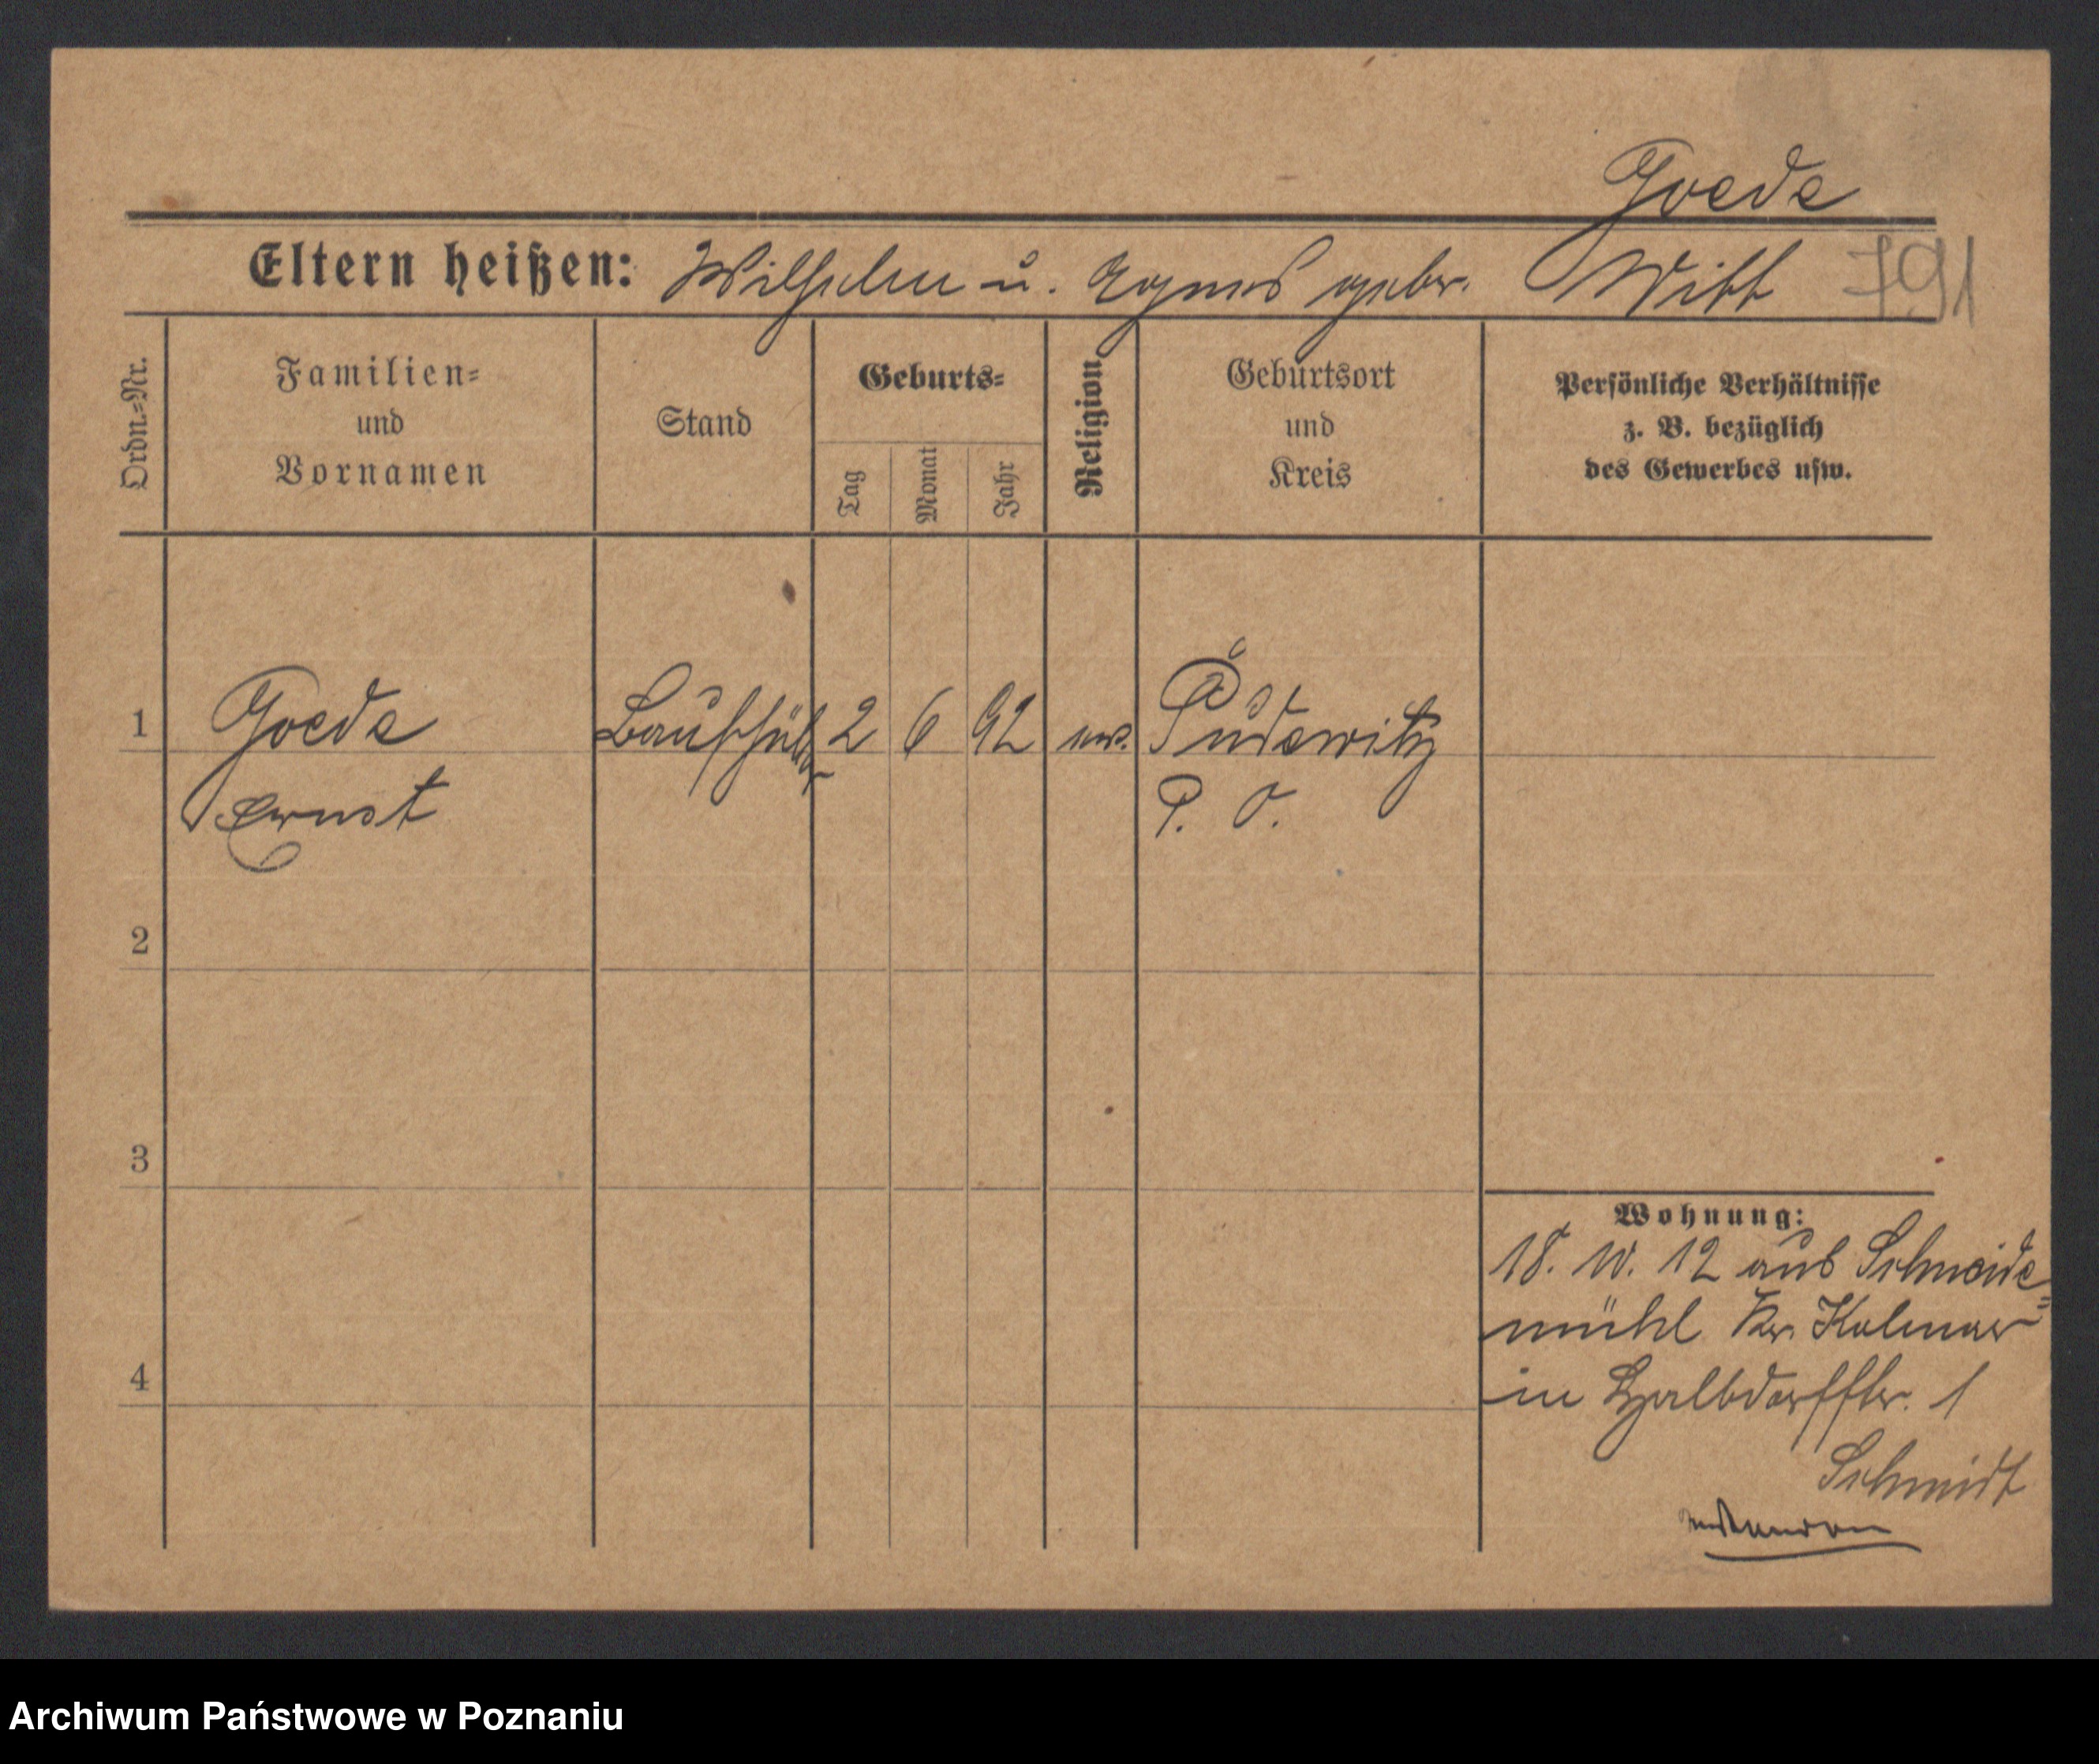 Goede
Eltern heißen: Wilhelm u. Agnes gebr. Witt 791
Ordn.=Nr.
Familien=
und
Vornamen
Stand
Geburts=
Tag
Monat
Jahr
Religion
Geburtsort
und
Kreis
Persönliche Verhältnisse
z. B. bezüglich
des Gewerbes usw.
1 Goede 2 6 92 Pudewitz
Ernst P. O.
2
3
4
Wohnung:
18. 10. 12 aus Schneide=
mühl Kr. Kolmar
in Halbdorffstr. 1
Schmidt
Archiwum Państwowe w Poznaniu